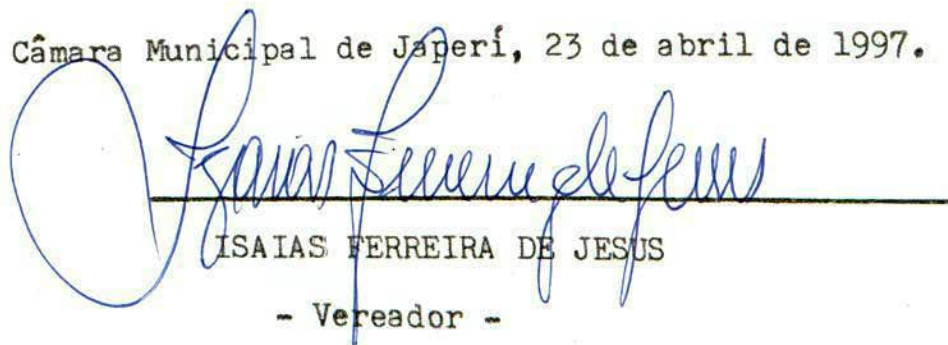 Câmara Municipal de Japerí, 23 de abril de 1997.
Isaias Ferreira de Jesus
ISAIAS FERREIRA DE JESUS
- Vereador -